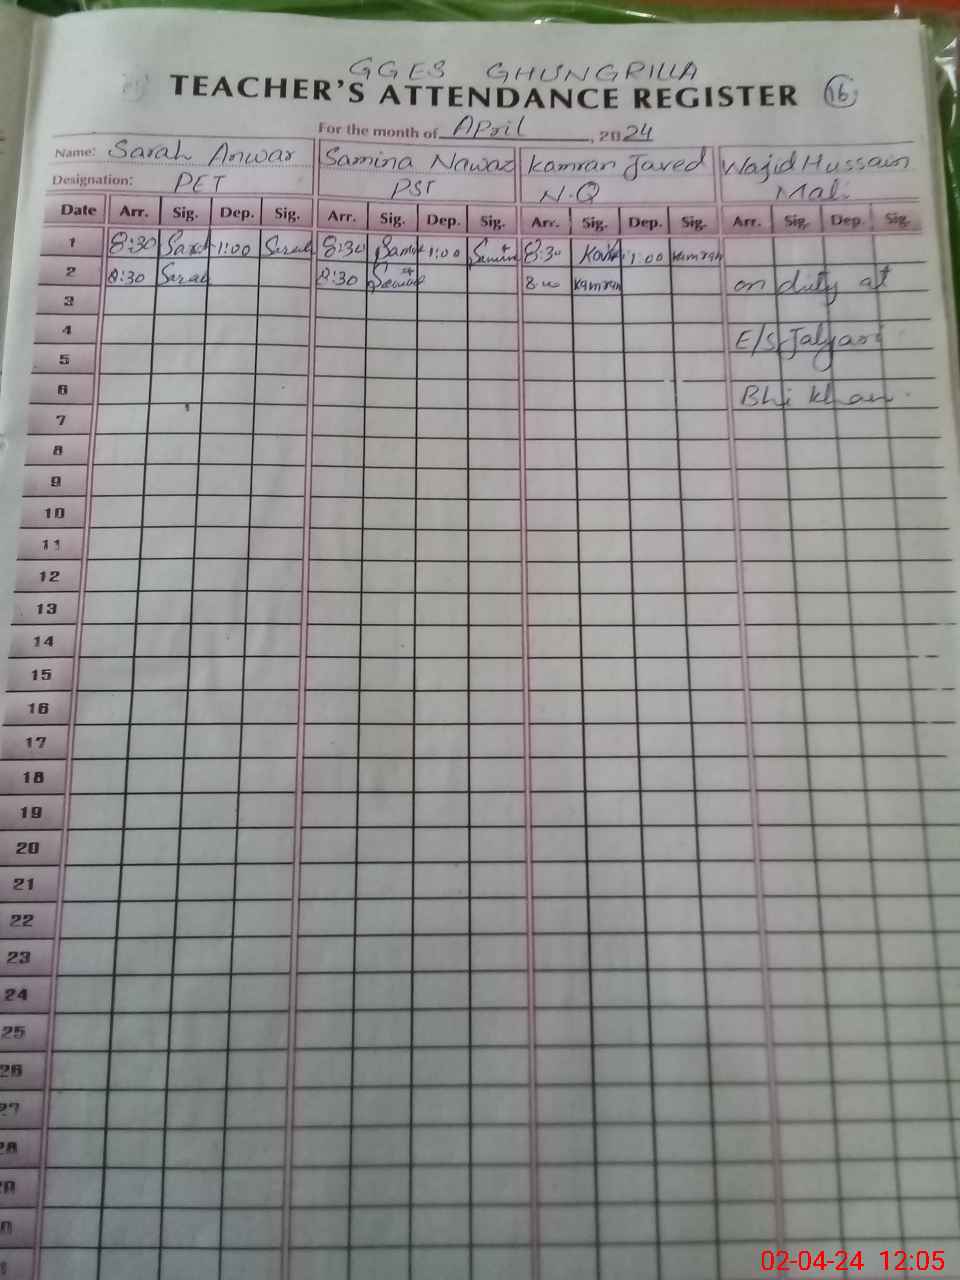 GGES GHUNGRILLA
TEACHER'S ATTENDANCE REGISTER 16
For the month of April, 2024
Name: Sarah Anwar Samina Nawaz Kamran Javed Wajid Hussain
Designation: PET PST N.Q Mali
Date Arr. Sig. Dep. Sig. Arr. Sig. Dep. Sig. Arr. Sig. Dep. Sig. Arr. Sig. Dep. Sig.
1 8:30 Sarah 1:00 Sarah 8:30 Samina 1:00 Samina 8:30 1:00 Kamran
2 8:30 Sarah 8:30 Kamran on duty at
3
4 E/S
5
6 Bhi Khan.
7
8
9
10
11
12
13
14
15
16
17
18
19
20
21
22
23
24
25
26
27
28
02-04-24 12:05